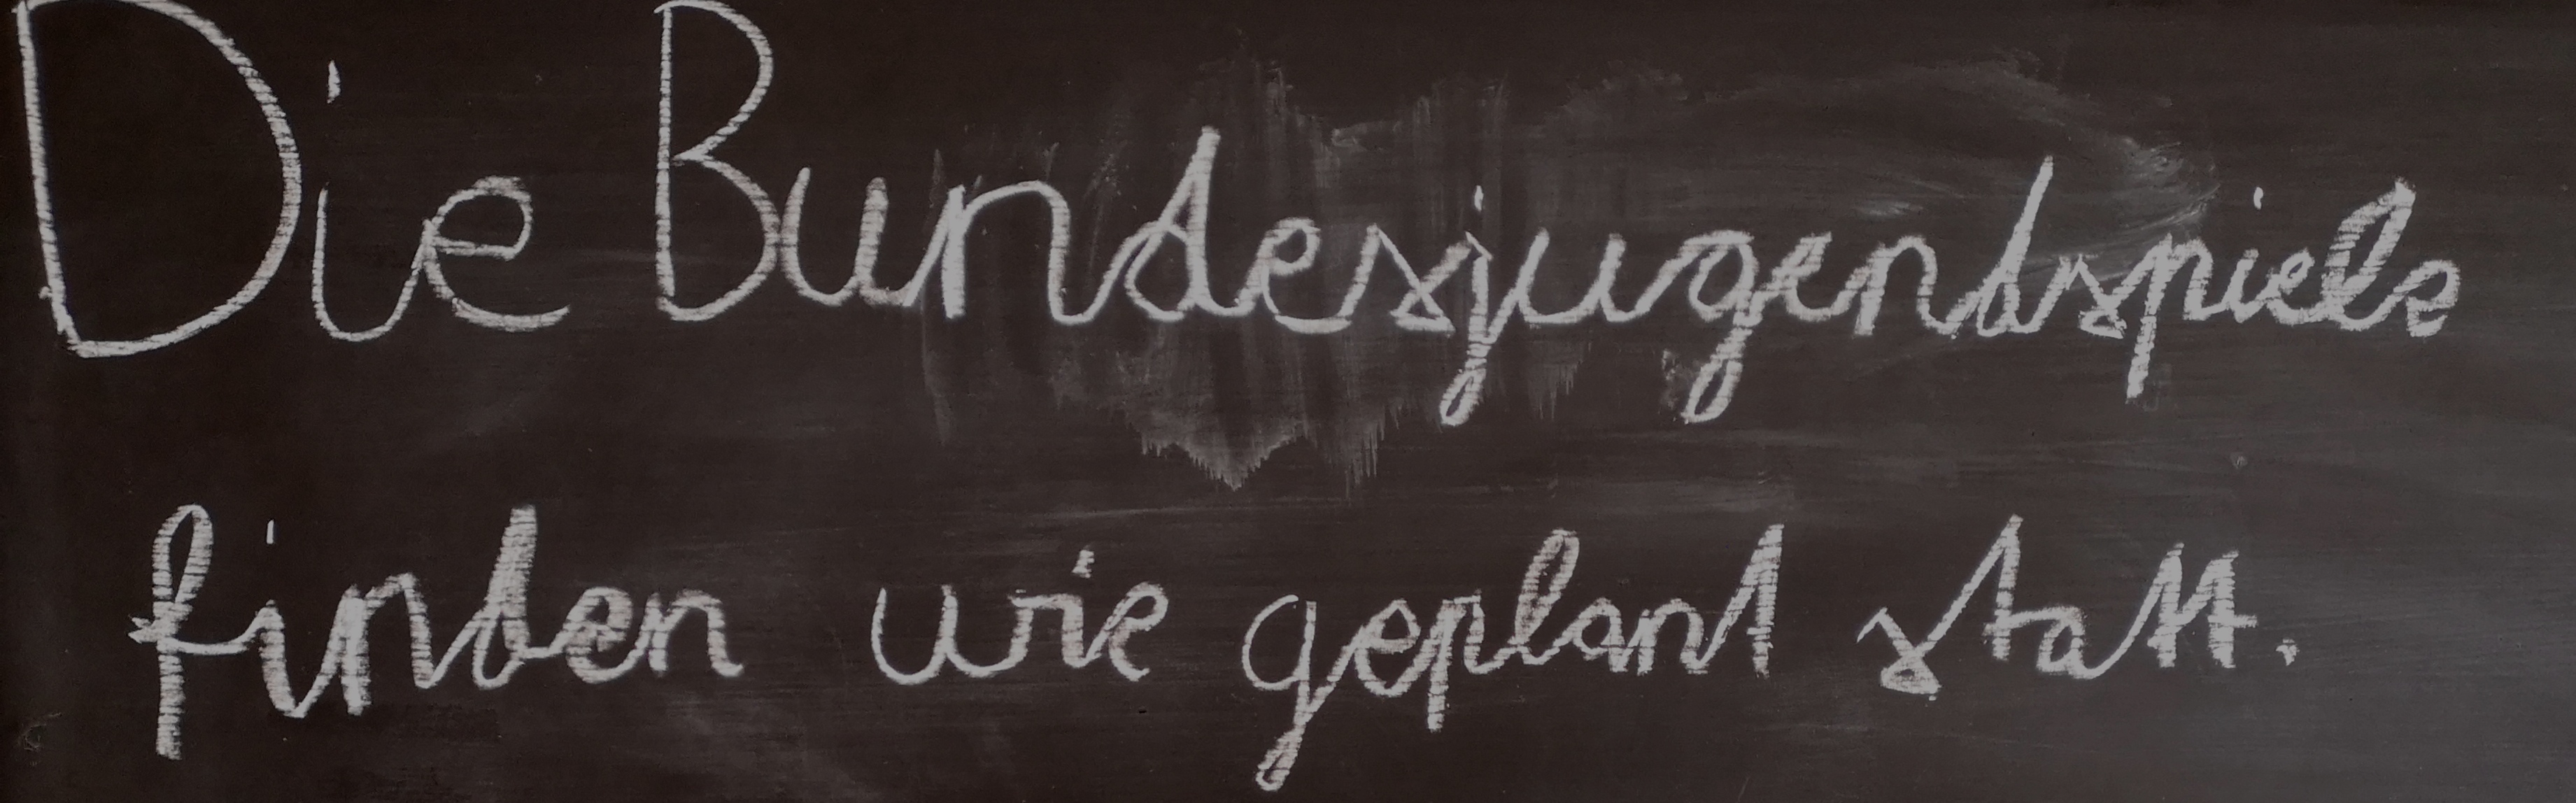 Die Bundesjugendspiele
finden wie geplant statt.